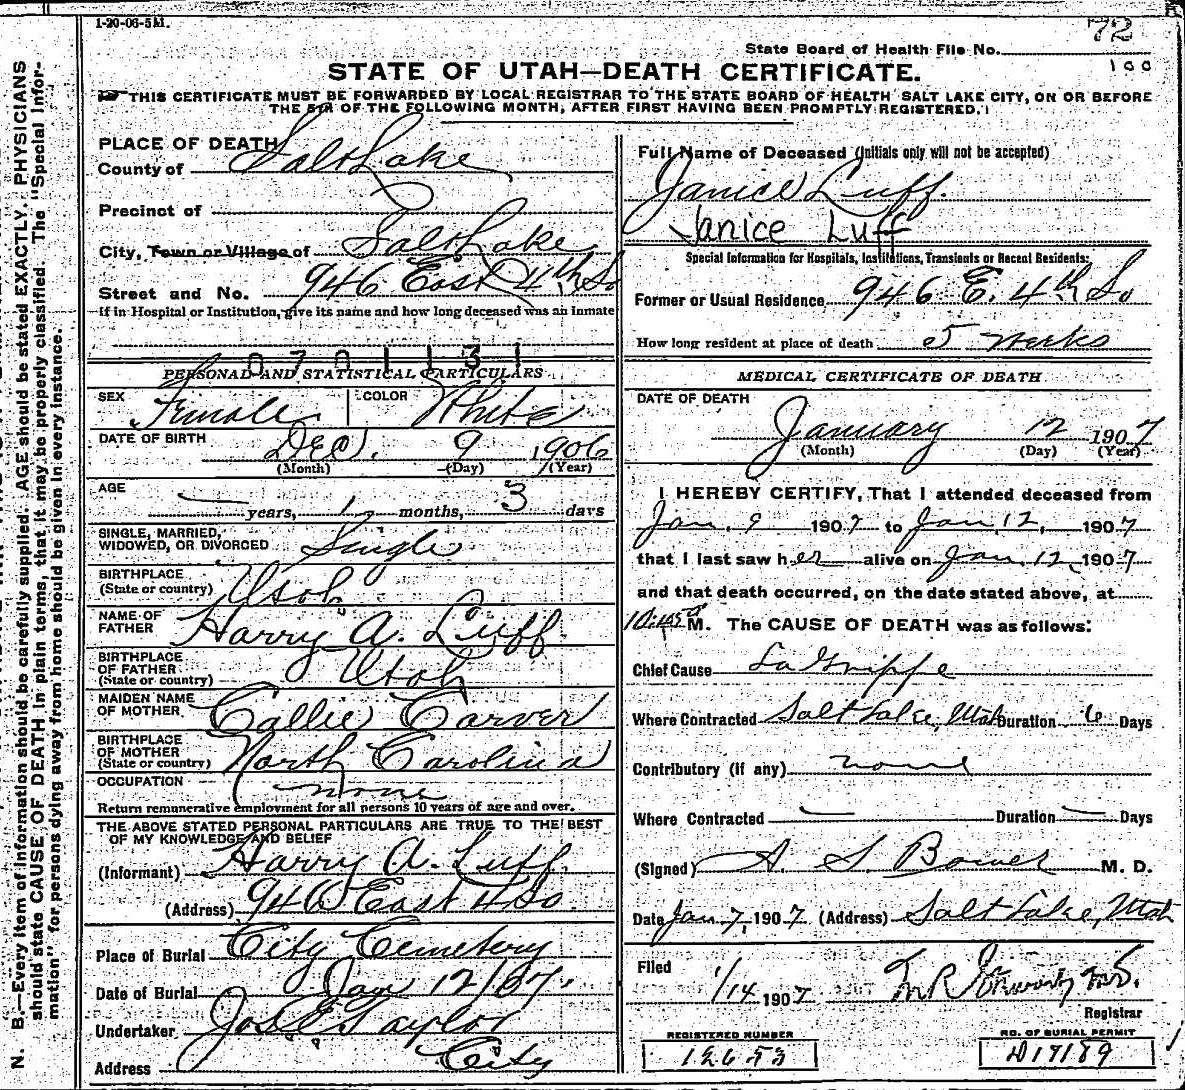 1-20-06-5M.
72
State Board of Health File No.
100
STATE OF UTAH—DEATH CERTIFICATE.
THIS CERTIFICATE MUST BE FORWARDED BY LOCAL REGISTRAR TO THE STATE BOARD OF HEALTH SALT LAKE CITY, ON OR BEFORE
THE 5TH OF THE FOLLOWING MONTH, AFTER FIRST HAVING BEEN PROMPTLY REGISTERED.
N. B.—Every item of information should be carefully supplied. AGE should be stated EXACTLY. PHYSICIANS
should state CAUSE OF DEATH in plain terms, that it may be properly classified. The "Special Infor-
mation" for persons dying away from home should be given in every instance.
PLACE OF DEATH
County of Salt Lake
Precinct of
City, Town or Village of Salt Lake
Street and No. 946 East 4th So
If in Hospital or Institution, give its name and how long deceased was an inmate
0701131
PERSONAL AND STATISTICAL PARTICULARS
SEX Female COLOR White
DATE OF BIRTH Dec. 9 1906
(Month) (Day) (Year)
AGE
— years, 1 months, 3 days
SINGLE, MARRIED,
WIDOWED, OR DIVORCED Single
BIRTHPLACE
(State or country) Utah
NAME OF
FATHER Harry A. Luff
BIRTHPLACE
OF FATHER
(State or country) Utah
MAIDEN NAME
OF MOTHER Callie Carver
BIRTHPLACE
OF MOTHER
(State or country) North Carolina
OCCUPATION none
Return remunerative employment for all persons 10 years of age and over.
THE ABOVE STATED PERSONAL PARTICULARS ARE TRUE TO THE BEST
OF MY KNOWLEDGE AND BELIEF
(Informant) Harry A. Luff.
(Address) 946 East 4 So
Place of Burial City Cemetery
Date of Burial Jan 12/07.
Undertaker Jos E Taylor
Address City
Full Name of Deceased (Initials only will not be accepted)
Janice Luff.
Janice Luff
Special Information for Hospitals, Institutions, Transients or Recent Residents:
Former or Usual Residence 946 E. 4th So
How long resident at place of death 5 weeks
MEDICAL CERTIFICATE OF DEATH
DATE OF DEATH
January 12 1907
(Month) (Day) (Year)
I HEREBY CERTIFY, That I attended deceased from
Jan. 9 1907 to Jan 12, 1907
that I last saw her alive on Jan. 12, 1907
and that death occurred, on the date stated above, at
10:45 P M. The CAUSE OF DEATH was as follows:
Chief Cause La Grippe
Where Contracted Salt Lake, Utah Duration 6 Days
Contributory (if any) none
Where Contracted — Duration — Days
(Signed) A. S. Bower M. D.
Date Jan 7, 1907 (Address) Salt Lake, Utah
Filed
1/14 1907
Registrar
REGISTERED NUMBER
12653
NO. OF BURIAL PERMIT
D17189